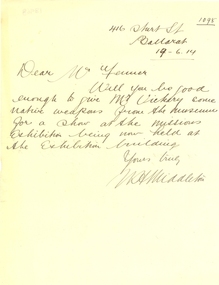 1095
Sturt St
Ballarat
19-6.14
Dear Mr Fenner
Will you be good
enough to give Mr Vickery some
native weapons from the museum
for a show at the missions
Exhibition being now held at
the Exhibition building
Yours truly
Middleton